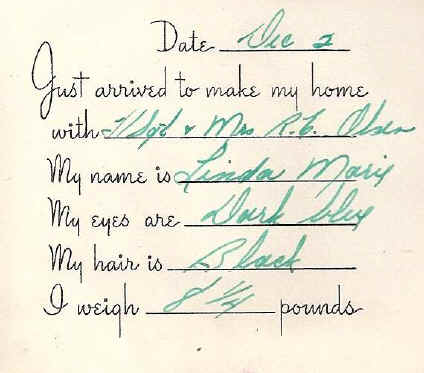 Date Dec 2
Just arrived to make my home
with T/Sgt & Mrs R.E. Olsen
My name is Linda Marie
My eyes are Dark blue
My hair is Black
I weigh 8 1/4 pounds